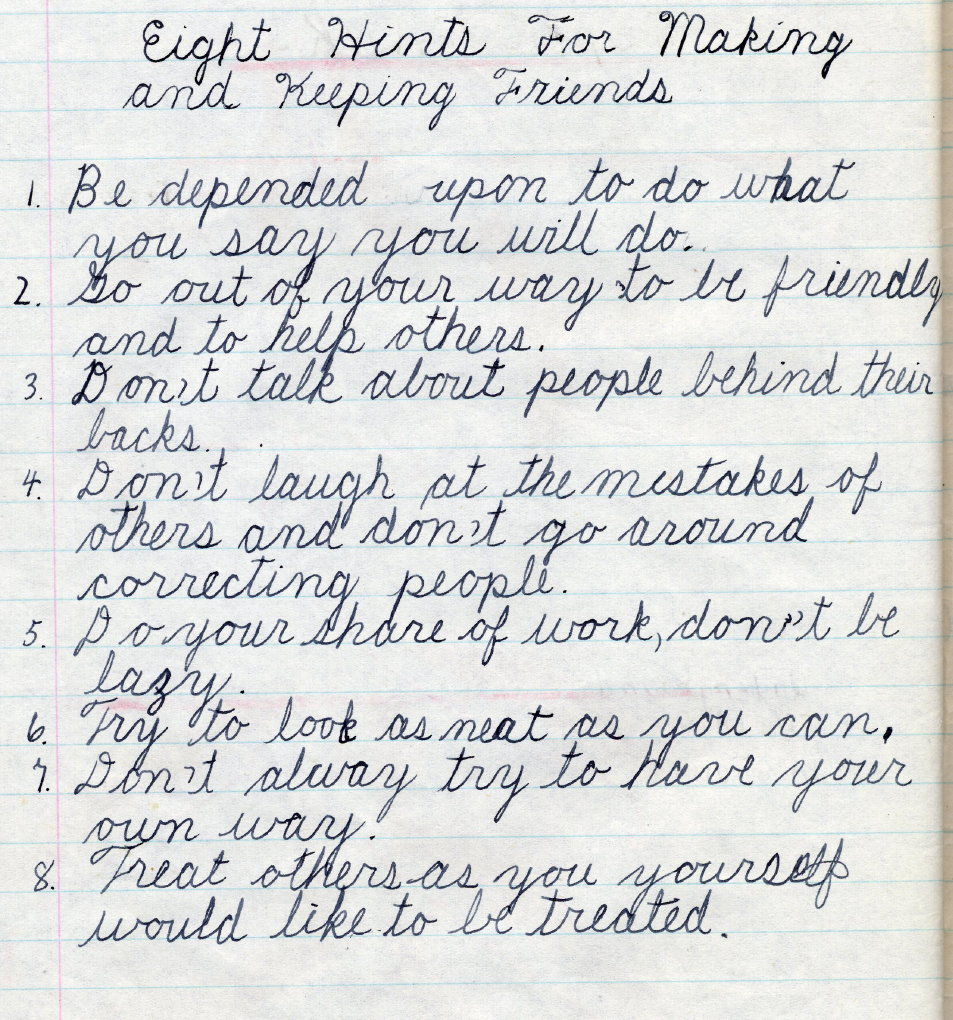 Eight Hints For Making
and Keeping Friends
1. Be depended upon to do what
you say you will do.
2. Go out of your way to be friendly
and to help others.
3. Don't talk about people behind their
backs.
4. Don't laugh at the mistakes of
others and don't go around
correcting people.
5. Do your share of work, don't be
lazy.
6. Try to look as neat as you can.
7. Don't alway try to have your
own way.
8. Treat others as you yourself
would like to be treated.